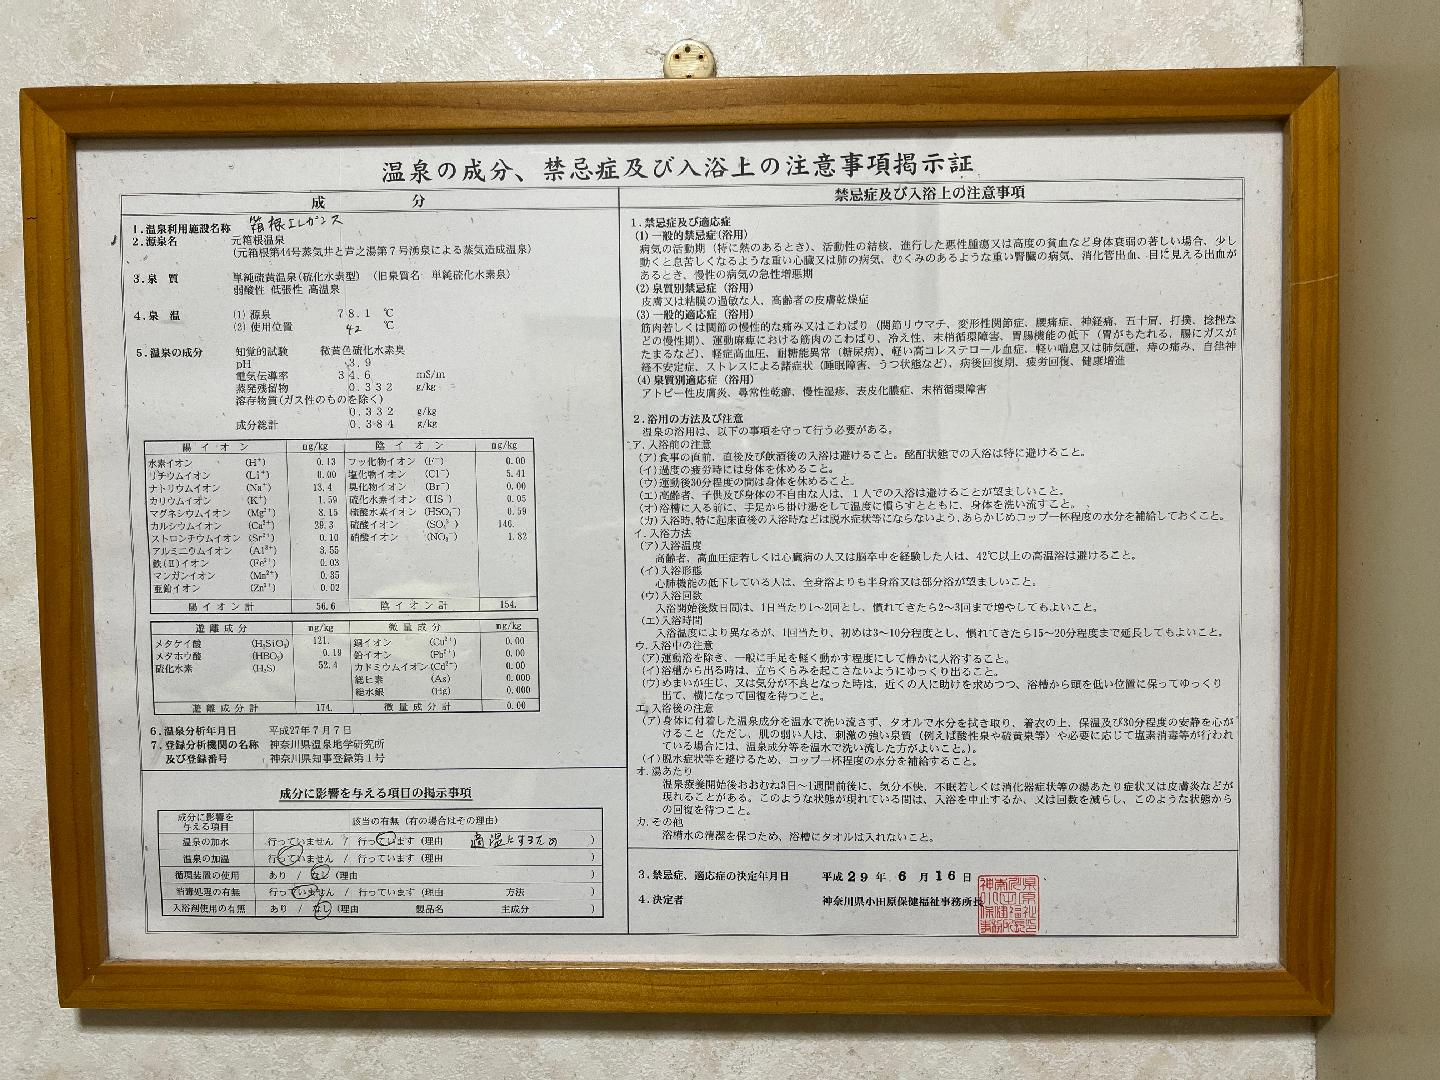 温泉の成分、禁忌症及び入浴上の注意事項掲示証
成 分
1.温泉利用施設名称 箱根エレガンス
2.源泉名 元箱根温泉
(元箱根第44号蒸気井と芦之湯第7号湧泉による蒸気造成温泉)
3.泉 質 単純硫黄温泉(硫化水素型) (旧泉質名 単純硫化水素泉)
弱酸性 低張性 高温泉
4.泉 温 (1) 源泉 78.1 ℃
(2) 使用位置 42 ℃
5.温泉の成分 知覚的試験 微黄色硫化水素臭
pH 3.9
電気伝導率 34.6 mS/m
蒸発残留物 0.332 g/kg
溶存物質(ガス性のものを除く)
0.332 g/kg
成分総計 0.384 g/kg
陽イオン mg/kg 陰イオン mg/kg
水素イオン (H⁺) 0.13 フッ化物イオン (F⁻) 0.00
リチウムイオン (Li⁺) 0.00 塩化物イオン (Cl⁻) 5.41
ナトリウムイオン (Na⁺) 13.4 臭化物イオン (Br⁻) 0.00
カリウムイオン (K⁺) 1.59 硫化水素イオン (HS⁻) 0.05
マグネシウムイオン (Mg²⁺) 8.15 硫酸水素イオン (HSO₄⁻) 0.59
カルシウムイオン (Ca²⁺) 29.3 硫酸イオン (SO₄²⁻) 146.
ストロンチウムイオン (Sr²⁺) 0.10 硝酸イオン (NO₃⁻) 1.82
アルミニウムイオン (Al³⁺) 3.55
鉄(Ⅱ)イオン (Fe²⁺) 0.03
マンガンイオン (Mn²⁺) 0.35
亜鉛イオン (Zn²⁺) 0.02
陽イオン計 56.6 陰イオン計 154.
遊離成分 mg/kg 微量成分 mg/kg
メタケイ酸 (H₂SiO₃) 121. 銅イオン (Cu²⁺) 0.00
メタホウ酸 (HBO₂) 0.19 鉛イオン (Pb²⁺) 0.00
硫化水素 (H₂S) 52.4 カドミウムイオン (Cd²⁺) 0.00
総ヒ素 (As) 0.000
総水銀 (Hg) 0.000
遊離成分計 174. 微量成分計 0.00
6.温泉分析年月日 平成27年7月7日
7.登録分析機関の名称 神奈川県温泉地学研究所
及び登録番号 神奈川県知事登録第1号
成分に影響を与える項目の掲示事項
成分に影響を与える項目 該当の有無(有の場合はその理由)
温泉の加水 行っていません / 行っています (理由 適温にするため )
温泉の加温 行っていません / 行っています (理由 )
循環装置の使用 あり / なし (理由 )
消毒処理の有無 行っていません / 行っています (理由 方法 )
入浴剤使用の有無 あり / なし (理由 製品名 主成分 )
禁忌症及び入浴上の注意事項
1.禁忌症及び適応症
(1) 一般的禁忌症(浴用)
病気の活動期(特に熱のあるとき)、活動性の結核、進行した悪性腫瘍又は高度の貧血など身体衰弱の著しい場合、少し
動くと息苦しくなるような重い心臓又は肺の病気、むくみのあるような重い腎臓の病気、消化管出血、目に見える出血が
あるとき、慢性の病気の急性増悪期
(2) 泉質別禁忌症(浴用)
皮膚又は粘膜の過敏な人、高齢者の皮膚乾燥症
(3) 一般的適応症(浴用)
筋肉若しくは関節の慢性的な痛み又はこわばり(関節リウマチ、変形性関節症、腰痛症、神経痛、五十肩、打撲、捻挫な
どの慢性期)、運動麻痺における筋肉のこわばり、冷え性、末梢循環障害、胃腸機能の低下(胃がもたれる、腸にガスが
たまるなど)、軽症高血圧、耐糖能異常(糖尿病)、軽い高コレステロール血症、軽い喘息又は肺気腫、痔の痛み、自律神
経不安定症、ストレスによる諸症状(睡眠障害、うつ状態など)、病後回復期、疲労回復、健康増進
(4) 泉質別適応症(浴用)
アトピー性皮膚炎、尋常性乾癬、慢性湿疹、表皮化膿症、末梢循環障害
2.浴用の方法及び注意
温泉の浴用は、以下の事項を守って行う必要がある。
ア.入浴前の注意
(ア)食事の直前、直後及び飲酒後の入浴は避けること。酩酊状態での入浴は特に避けること。
(イ)過度の疲労時には身体を休めること。
(ウ)運動後30分程度の間は身体を休めること。
(エ)高齢者、子供及び身体の不自由な人は、1人での入浴は避けることが望ましいこと。
(オ)浴槽に入る前に、手足から掛け湯をして温度に慣らすとともに、身体を洗い流すこと。
(カ)入浴時、特に起床直後の入浴時などは脱水症状等にならないよう、あらかじめコップ一杯程度の水分を補給しておくこと。
イ.入浴方法
(ア)入浴温度
高齢者、高血圧症若しくは心臓病の人又は脳卒中を経験した人は、42℃以上の高温浴は避けること。
(イ)入浴形態
心肺機能の低下している人は、全身浴よりも半身浴又は部分浴が望ましいこと。
(ウ)入浴回数
入浴開始後数日間は、1日当たり1~2回とし、慣れてきたら2~3回まで増やしてもよいこと。
(エ)入浴時間
入浴温度により異なるが、1回当たり、初めは3~10分程度とし、慣れてきたら15~20分程度まで延長してもよいこと。
ウ.入浴中の注意
(ア)運動浴を除き、一般に手足を軽く動かす程度にして静かに入浴すること。
(イ)浴槽から出る時は、立ちくらみを起こさないようにゆっくり出ること。
(ウ)めまいが生じ、又は気分が不良となった時は、近くの人に助けを求めつつ、浴槽から頭を低い位置に保ってゆっくり
出て、横になって回復を待つこと。
エ.入浴後の注意
(ア)身体に付着した温泉成分を温水で洗い流さず、タオルで水分を拭き取り、着衣の上、保温及び30分程度の安静を心が
けること(ただし、肌の弱い人は、刺激の強い泉質(例えば酸性泉や硫黄泉等)や必要に応じて塩素消毒等が行われ
ている場合には、温泉成分等を温水で洗い流した方がよいこと。)。
(イ)脱水症状等を避けるため、コップ一杯程度の水分を補給すること。
オ.湯あたり
温泉療養開始後おおむね3日~1週間前後に、気分不快、不眠若しくは消化器症状等の湯あたり症状又は皮膚炎などが
現れることがある。このような状態が現れている間は、入浴を中止するか、又は回数を減らし、このような状態から
の回復を待つこと。
カ.その他
浴槽水の清潔を保つため、浴槽にタオルは入れないこと。
3.禁忌症、適応症の決定年月日 平成29年6月16日
4.決定者 神奈川県小田原保健福祉事務所長